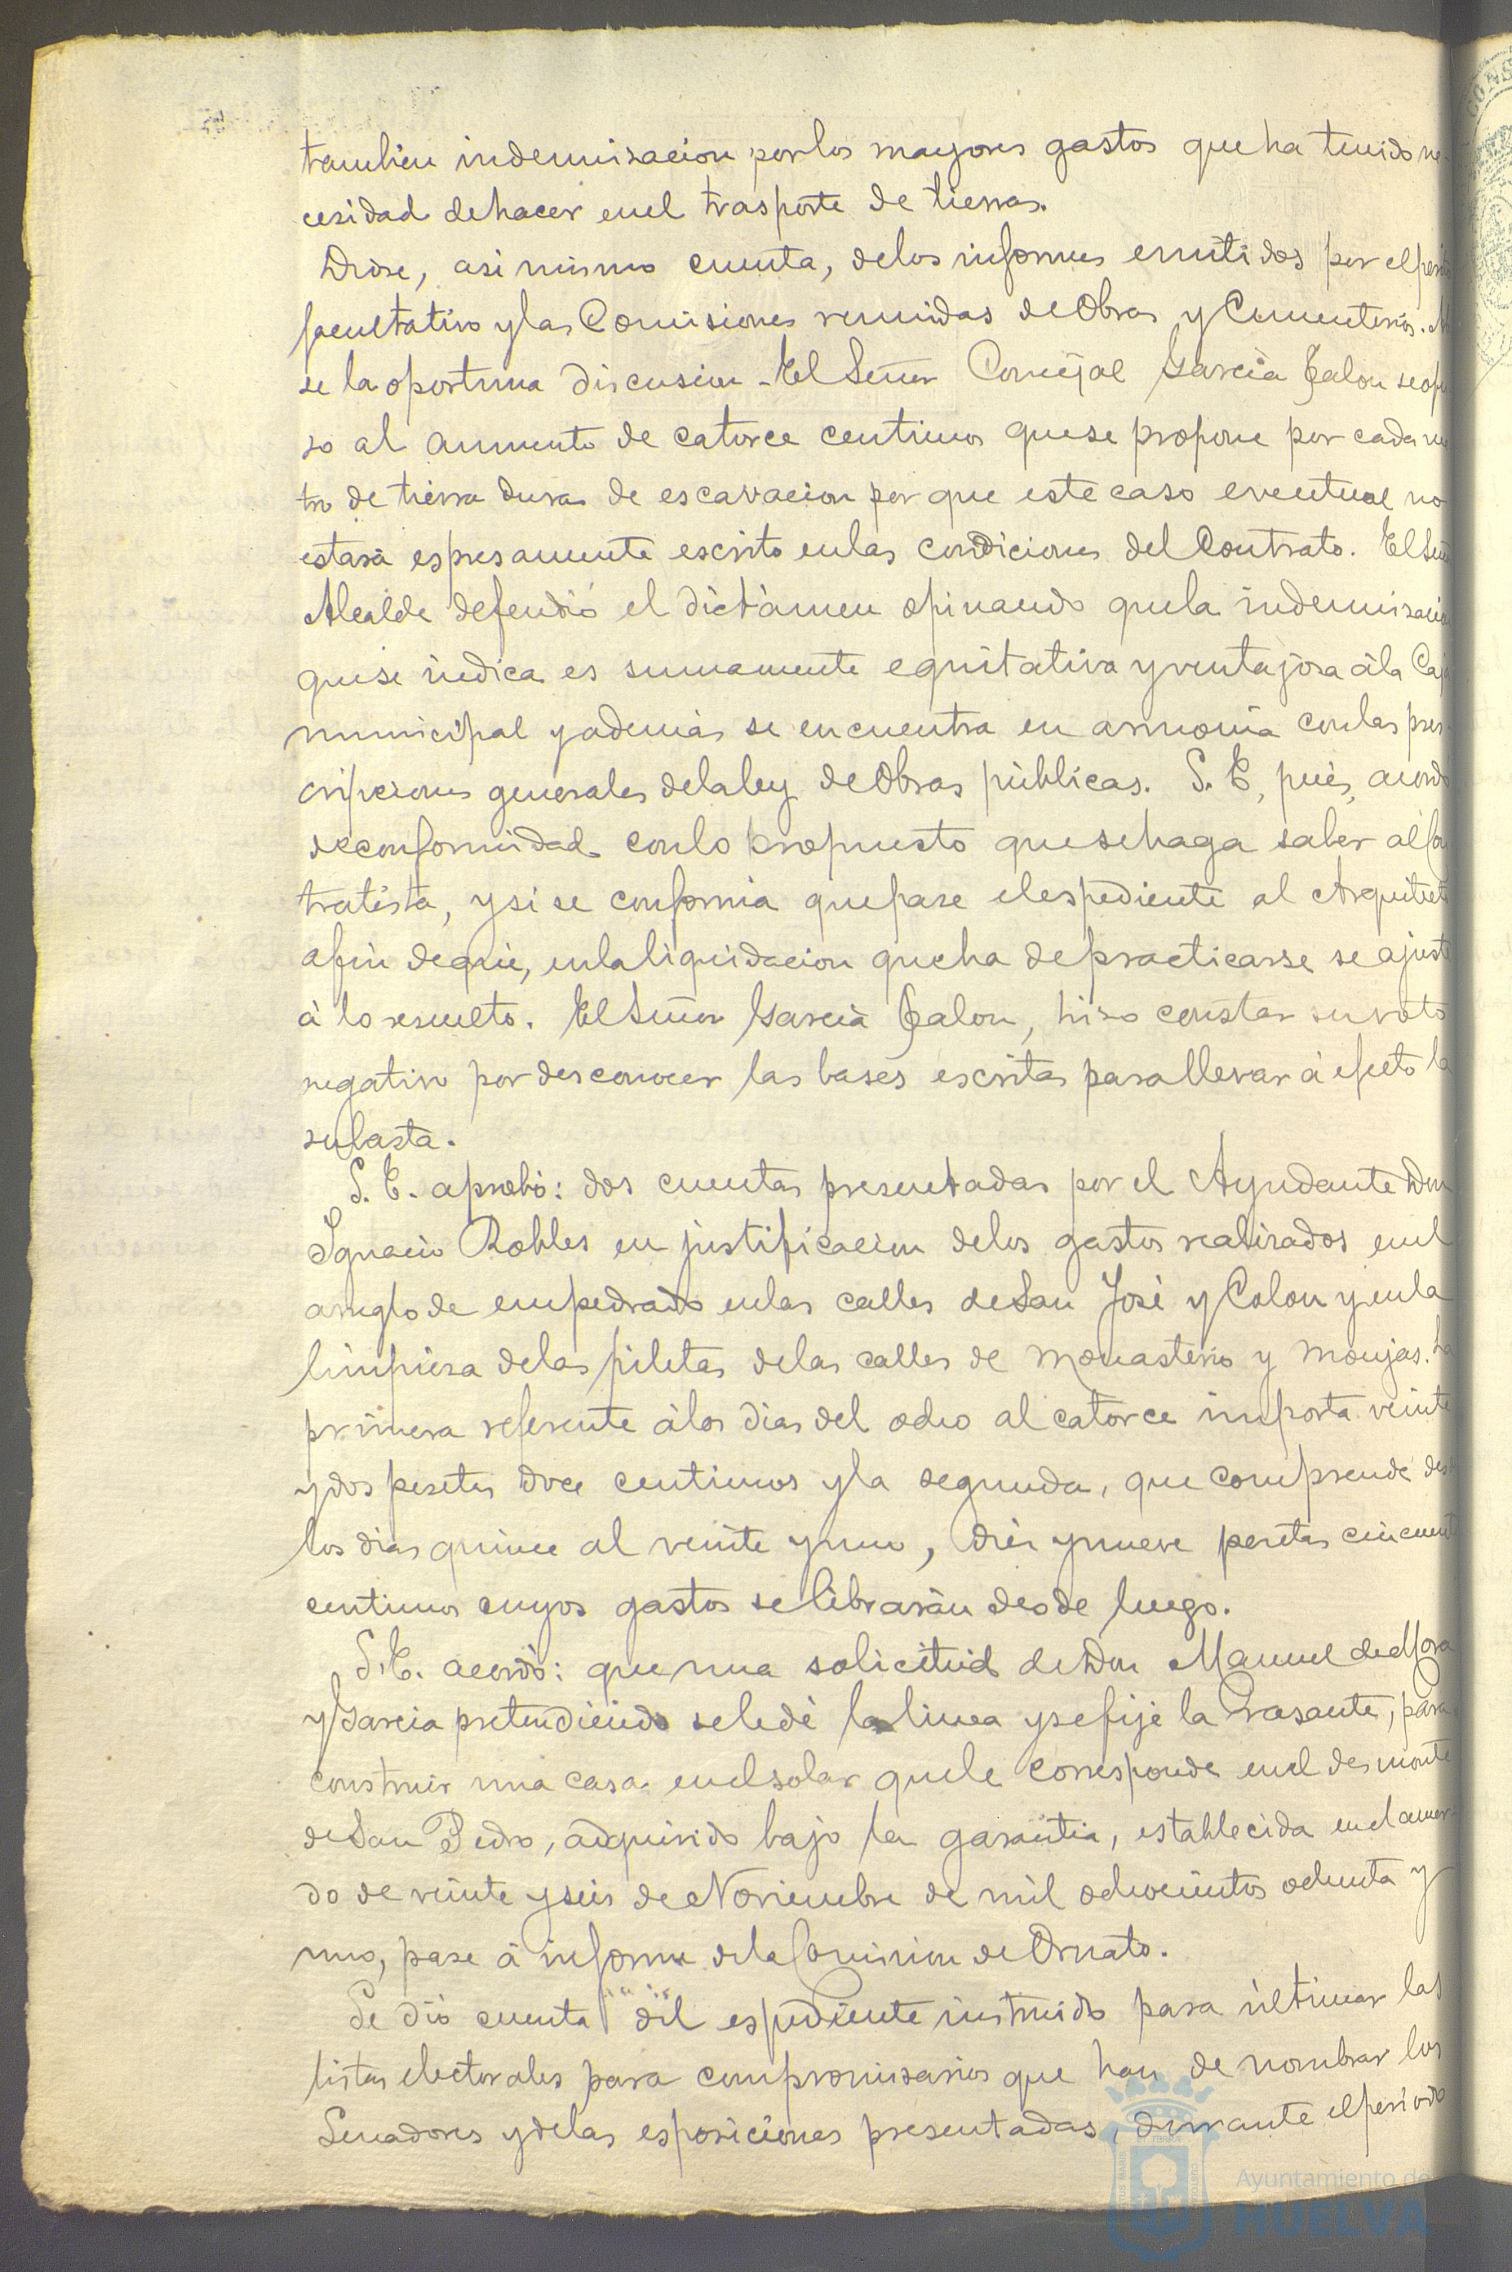 tambien indemnisacion por los mayores gastos que ha tenido ne-
cesidad de hacer en el trasporte de tierras.
Diose, asi mismo cuenta, de los informes emitidos por el perito
facultativo y las Comisiones reunidas de Obras y Cementerios.
se la oportuna discusion - El Señor Concejal Garcia Jalon se opu
so al aumento de catorce centimos que se propone por cada me
tro de tierra dura de escavacion por que este caso eventual no
estará espresamente escrito en las condiciones del Contrato. El Señ
Alcalde defendió el dictámen opinando que la indemnisacion
que se indica es sumamente equitativa y ventajosa á la Caja
municipal y además se encuentra en armonia con las pres-
cripciones generales de la ley de Obras públicas. S. E, pués, acordó
de conformidad con lo propuesto que se haga saber al Con
tratista, y si se conforma que pase el espediente al Arquitecto
a fin de que, en la liquidacion que ha de practicarse se ajuste
á lo resuelto. El Señor Garcia Jalon, hiso constar su voto
negativo por desconocer las bases escritas para llevar á efecto la
subasta.
S. E. aprobó: dos cuentas presentadas por el Ayudante Don
Ignacio Robles en justificacion de los gastos realizados en el
arreglo de empedrado en las calles de San José y Colon y en la
limpieza de las piletas de las calles de Monasterio y Monjas. La
primera referente á los dias del ocho al catorce importa veinte
y dos pesetas doce centimos y la segunda, que comprende des
los dias quince al veinte y uno, diez y nueve pesetas cincuenta
centimos cuyos gastos se librarán desde luego.
S. E. acordó: que una solicitud de Don Manuel de Mora
y Garcia pretendiendo se le dé la linea y se fije la rasante, para
construir una casa en el solar que le corresponde en el desmonte
de San Pedro, adquirido bajo la garantia, establecida en el acuer-
do de veinte y seis de Noviembre de mil ochocientos ochenta y
uno, pase á informe de la Comision de Ornato.
Se dió cuenta del espediente instruido para ultimar las
listas electorales para compromisarios que han de nombrar los
Senadores y de las esposiciones presentadas, durante el periodo
Ayuntamiento de
HUELVA